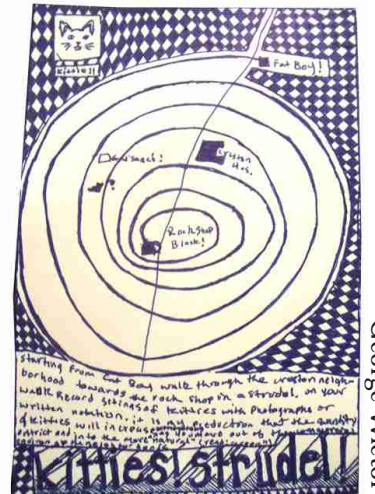 Kitties!!
Fat Boy!
Creston
Hts.
Rock Shop
Block!
starting from Fat Boy walk through the creston neigh-
borhood towards the rock shop in a strudel. on your
walk record sitings of kitties with photographs or
written notation. it is my deduction that the quantity
of kitties will increase as you venture out of the
district and into the more "natural"
Kitties! Strudel!
George Wietor